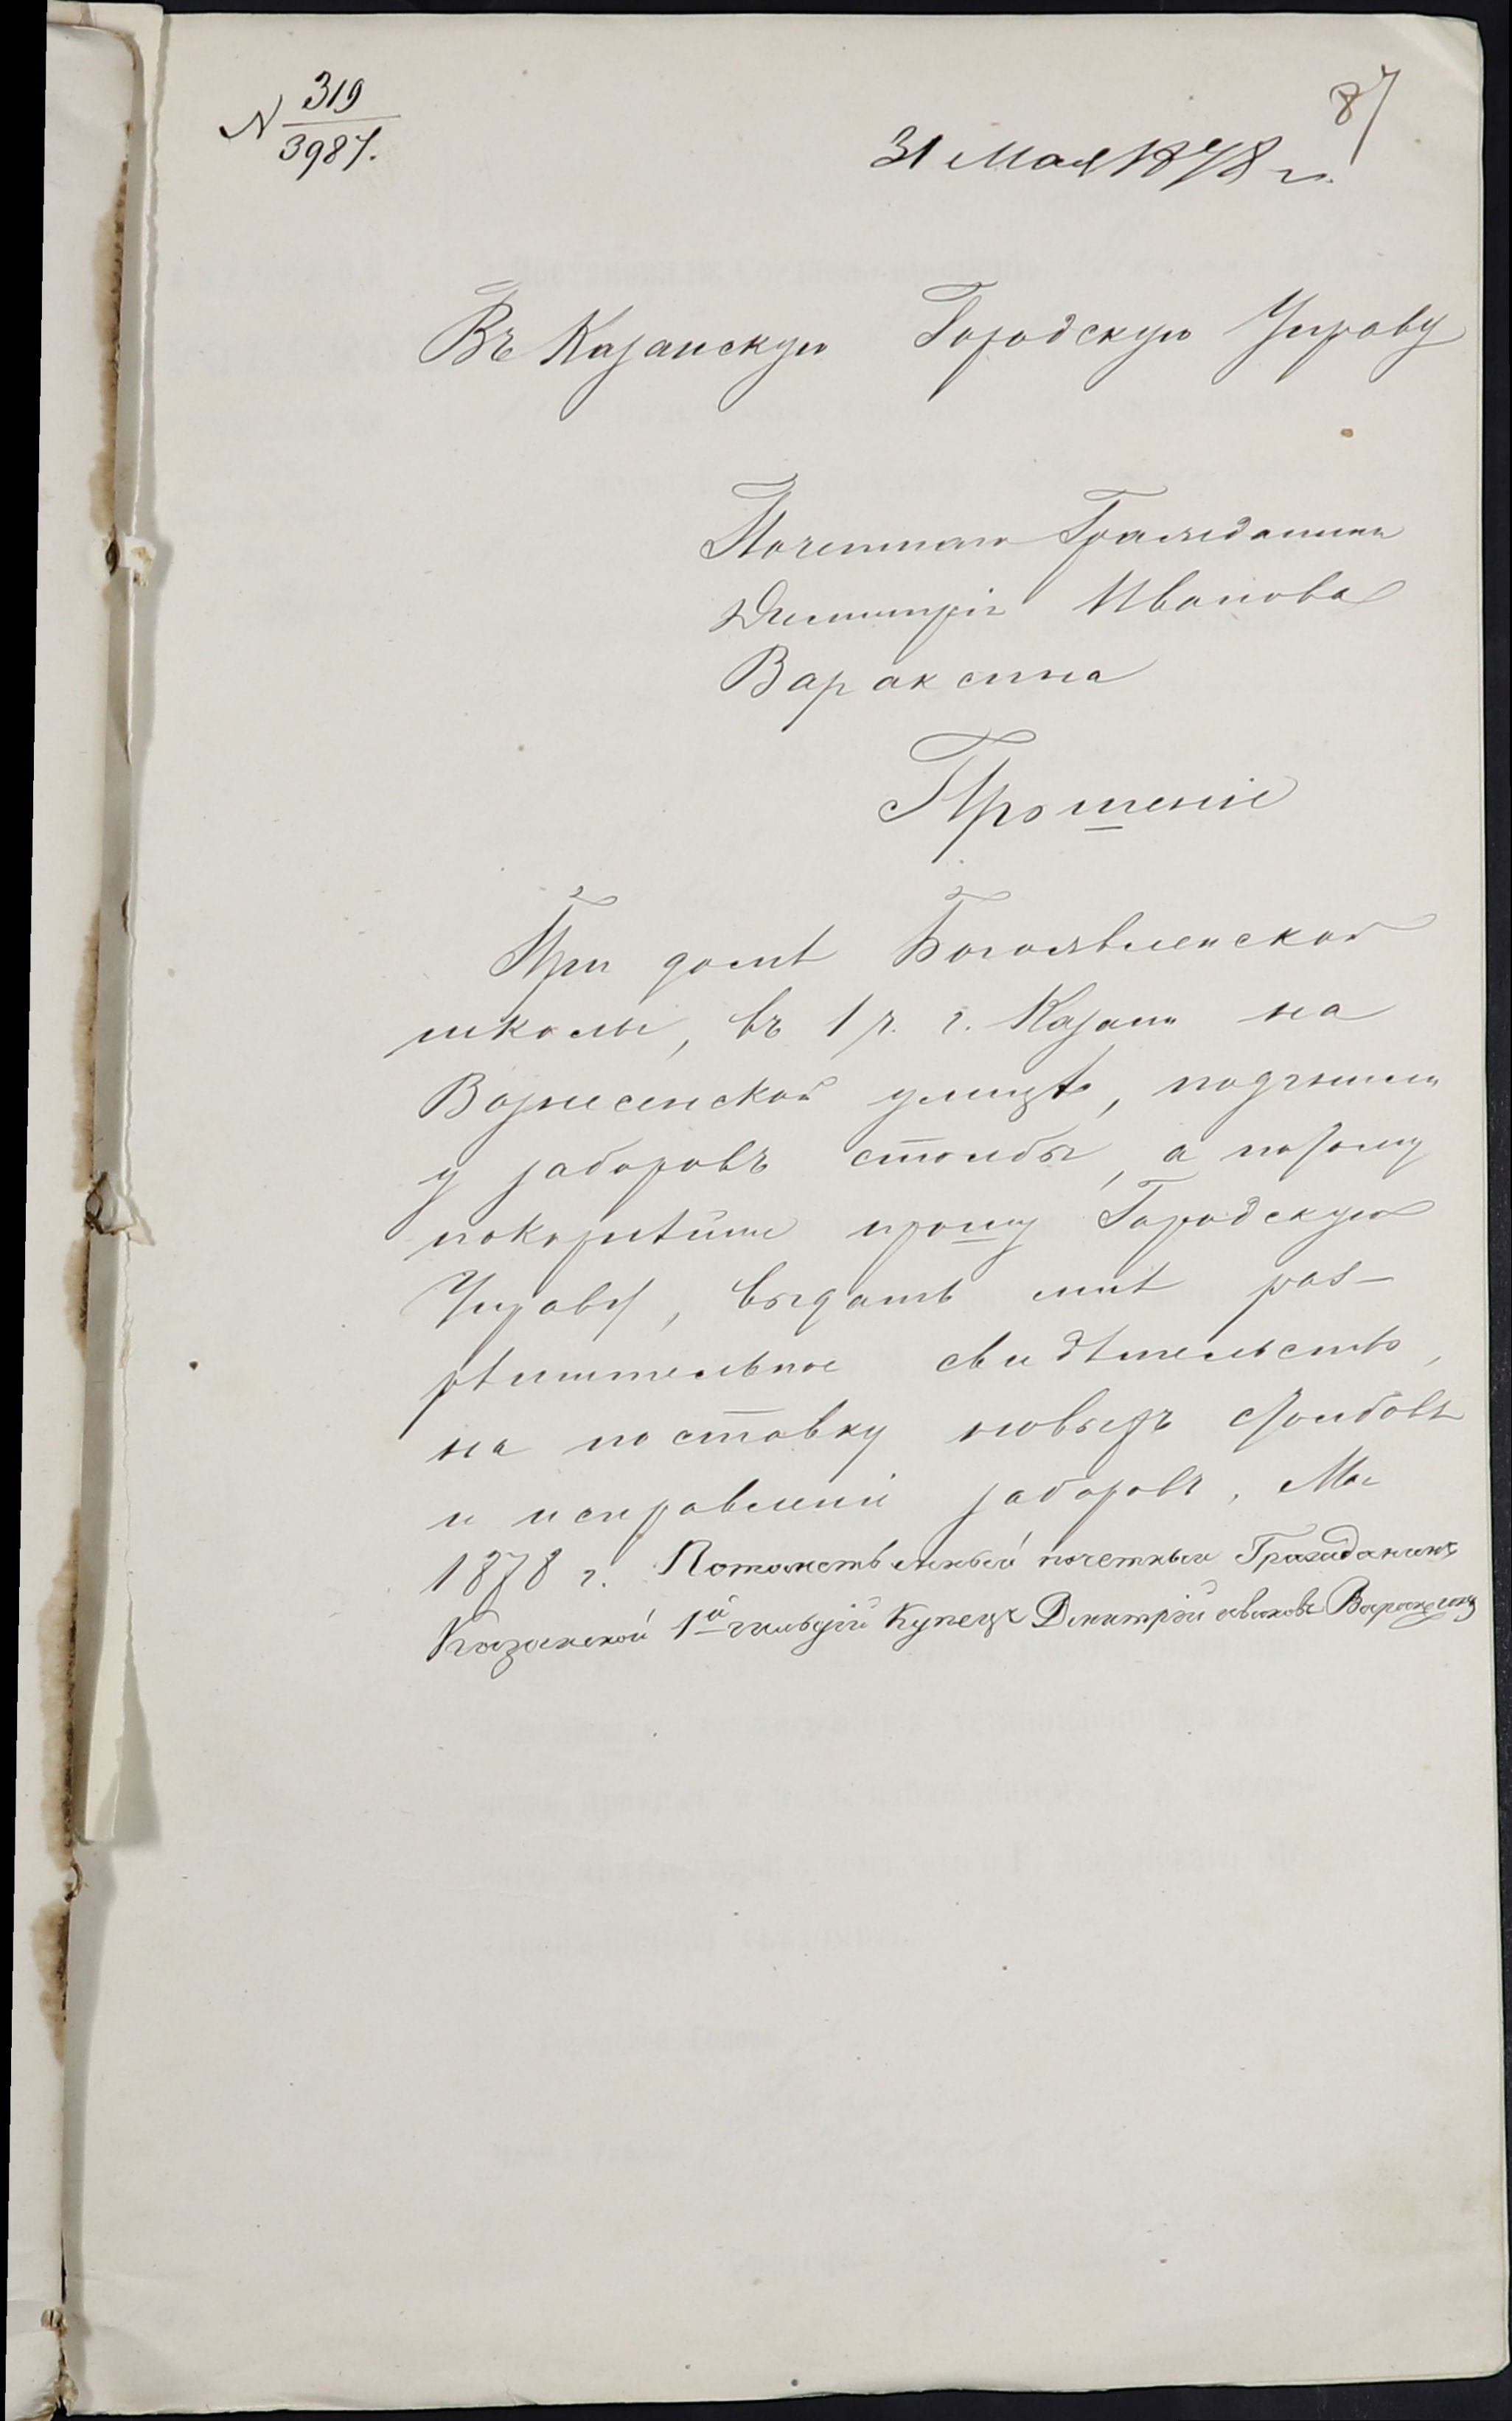 87
N 319
3987.
31 Мая 1878 г.
Въ Казанскую Городскую Управу
Почетнаго Гражданина
Димитрія Иванова
Вараксина
Прошеніе
При домѣ Богоявленской
школы, въ 1 ч. г. Казани на
Вознесенской улицѣ, подгнили
у заборовъ столбы, а потому
покорнѣйше прошу Городскую
Управу, выдать мнѣ раз-
рѣшительное свидѣтельство,
на поставку новыхъ столбовъ
и исправленіе заборовъ, Мая
1878 г. Потомственный почетный Гражданинъ
Казанской 1й гильдіи Купецъ Дмитрій ивановъ Вараксинъ